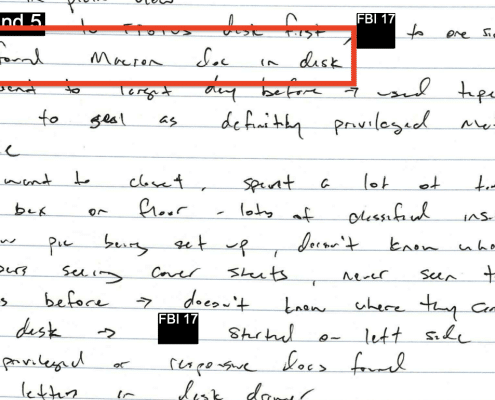 nd 5 to Trotus desk first, FBI 17 to one si
found Macron doc in desk
went to target day before → used tape
to seal as definitely privileged
e
want to closet, spent a lot of t
box on floor - lots of classified ins
pic being set up, doesn't know who
seeing cover sheets, never seen t
s before → doesn't know where they ca
desk → FBI 17 started on left side
privileged or responsive docs found
letters in desk drawer